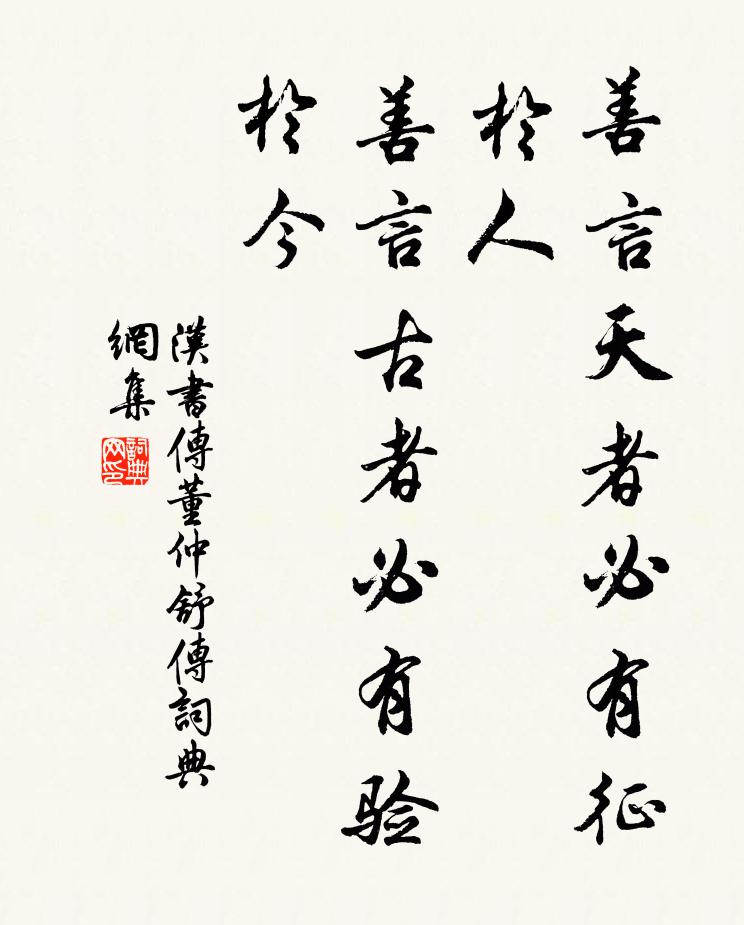 善言天者必有征
於人
善言古者必有验
於今
漢書傳董仲舒傳詞典
網集
詞典
网印